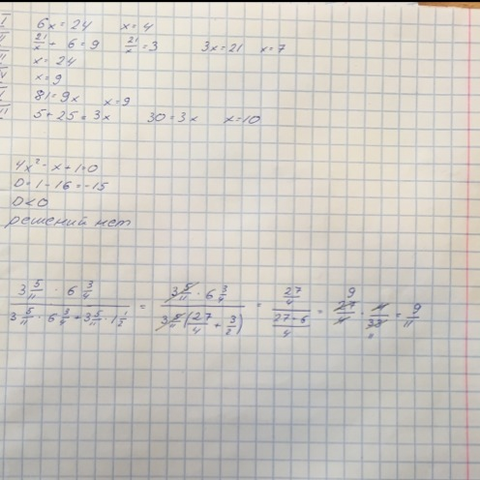 I 6x = 24 x = 4
II 21/x + 6 = 9 21/x = 3 3x = 21 x = 7
x = 24
x = 9
81 = 9x x = 9
5 + 25 = 3x 30 = 3x x = 10
4x² - x + 1 = 0
D = 1 - 16 = -15
D < 0
решений нет
(3 5/11 · 6 3/4) / (3 5/11 · 6 3/4 + 3 5/11 · 1 1/2) = (3 5/11 · 6 3/4) / (3 5/11 (27/4 + 3/2)) = (27/4) / ((27+6)/4) = 27/4 · 4/33 = 9/11